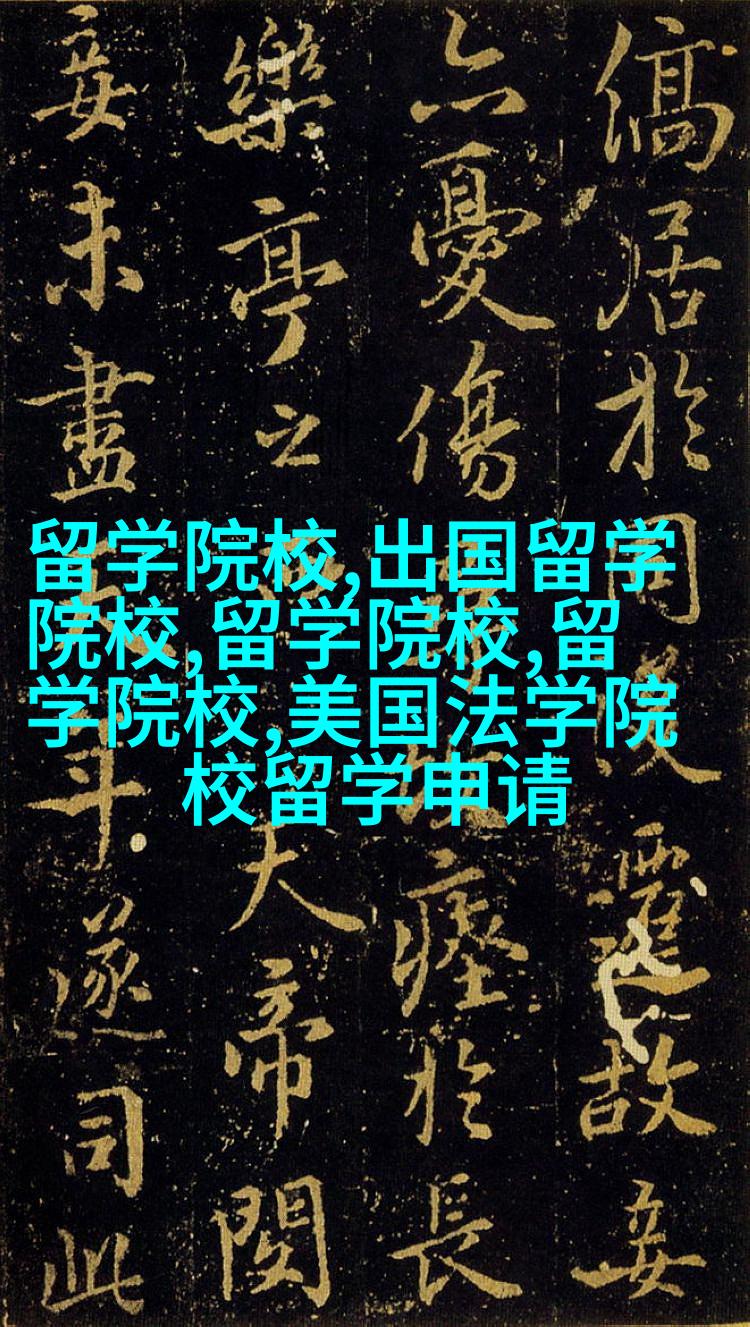 居於同遷故妾
亦憂傷瘞於長
樂亭之大帝閔
妾未盡年遂司此
留学院校,出国留学
院校,留学院校,留
学院校,美国法学院
校留学申请